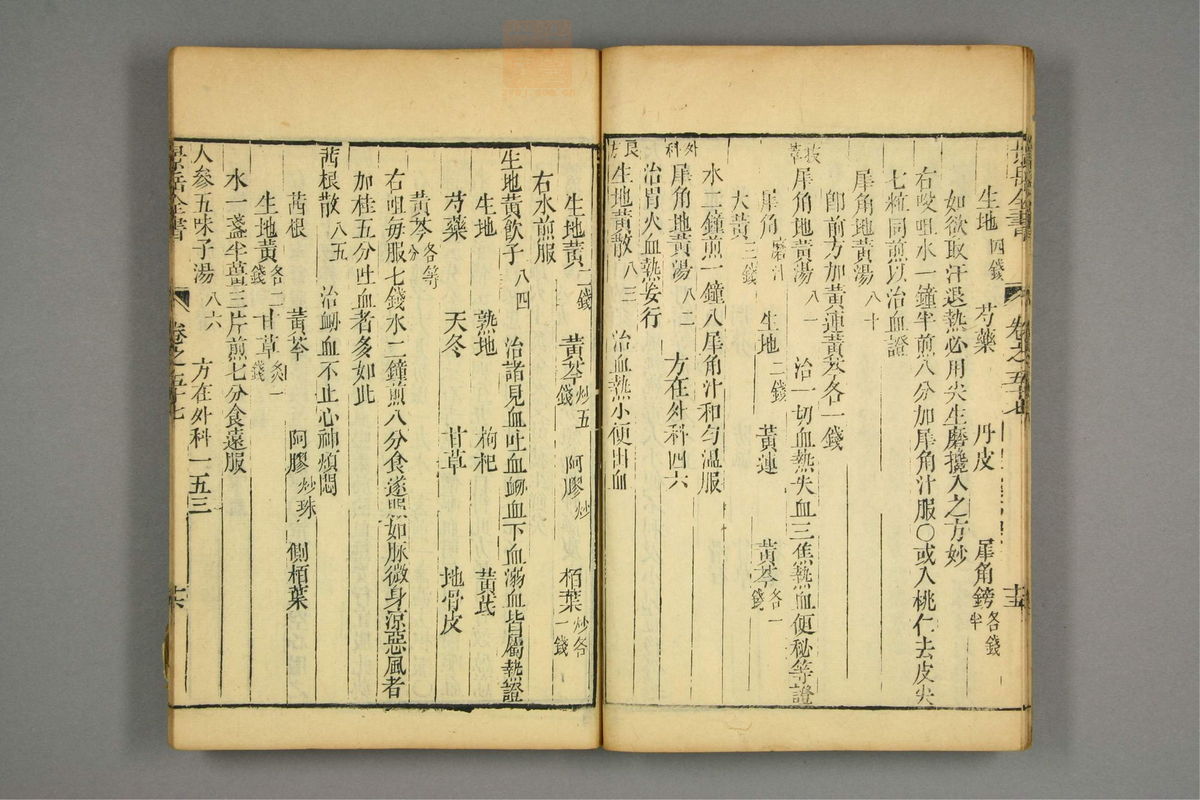 景岳全書 卷之五十七
生地四錢 芍藥 丹皮 犀角鎊各錢半
如欲取汗退熱必用尖生磨攙入之方妙
右㕮咀水一鐘半煎八分加犀角汁服○或入桃仁去皮尖
七粒同煎以治血證
犀角地黃湯八十
卽前方加黃連黃芩各一錢
犀角地黃湯八一 治一切血熱失血三焦熱血便秘等證
犀角磨汁 生地二錢 黃連 黃芩各一錢
大黃三錢
水二鐘煎一鐘入犀角汁和勻溫服
外科犀角地黃湯八二 方在外科四六
治胃火血熱妄行
良方生地黃散八三 治血熱小便出血
生地黃二錢 黃芩炒五錢 阿膠炒 栢葉炒各一錢
右水煎服
生地黃飲子八四 治諸見血吐血衂血下血溺血皆屬熱證
生地 熟地 枸杞 黃芪
芍藥 天冬 甘草 地骨皮
黃芩各等分
右咀每服七錢水二鐘煎八分食遠服如脉微身涼惡風者
加桂五分吐血者多如此
茜根散八五 治衂血不止心神煩悶
茜根 黃芩 阿膠炒珠 側栢葉
生地黃各二錢 甘草炙一錢
水一盞半薑三片煎七分食遠服
人參五味子湯八六 方在外科一五三
景岳全書 卷之五十七